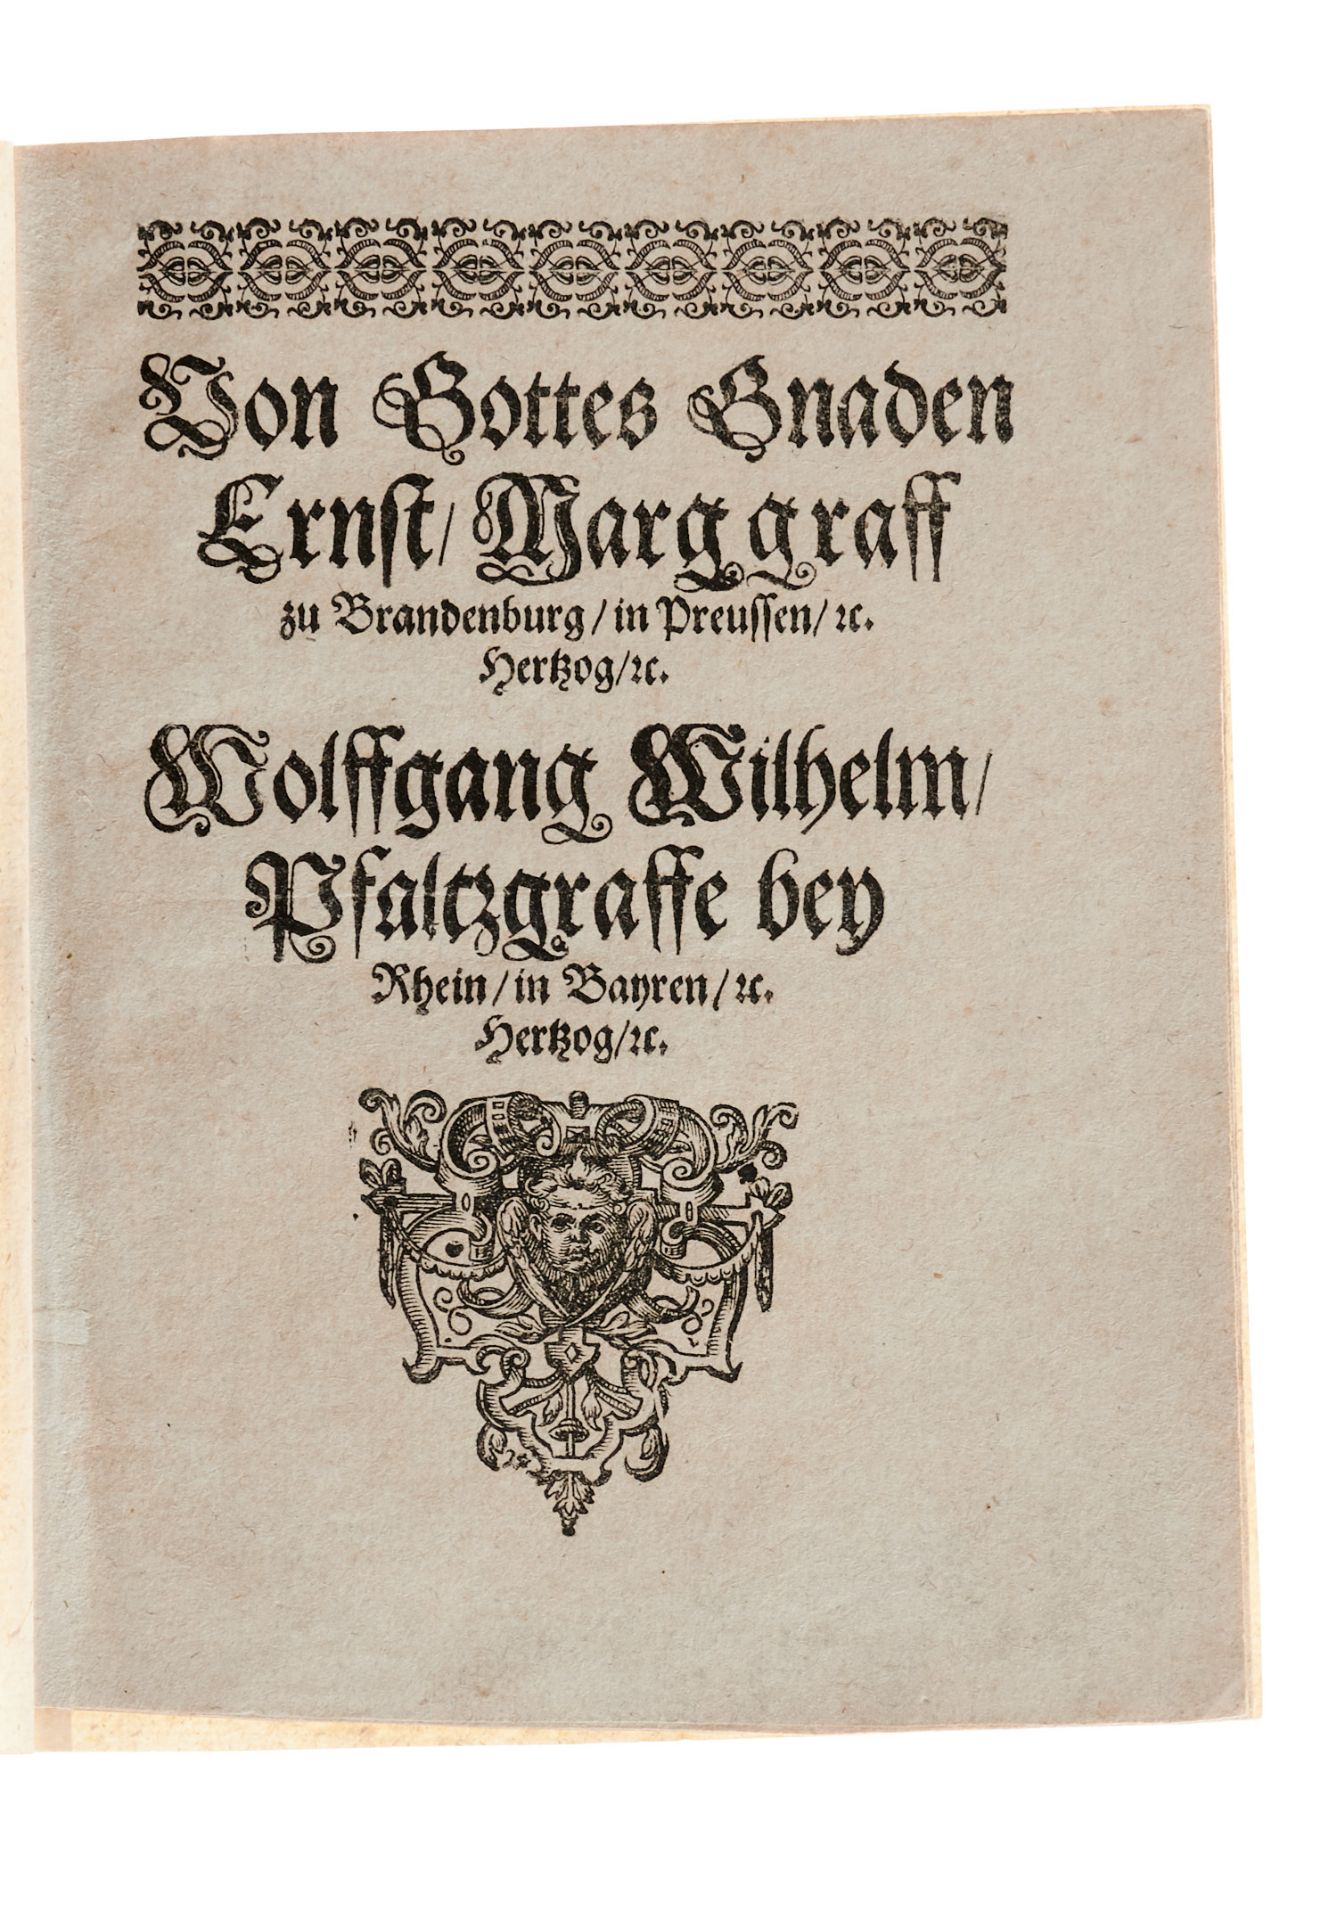 Von Gottes Gnaden
Ernst/ Marggraff
zu Brandenburg/ in Preussen/ ꝛc.
Hertzog/ ꝛc.
Wolffgang Wilhelm/
Pfaltzgraffe bey
Rhein/ in Bayren/ ꝛc.
Hertzog/ ꝛc.